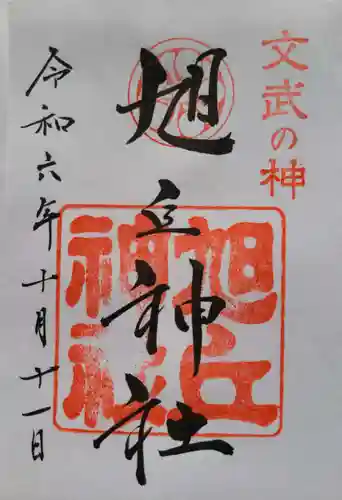 文武の神
旭立神社
旭立
神社
令和六年十月十一日